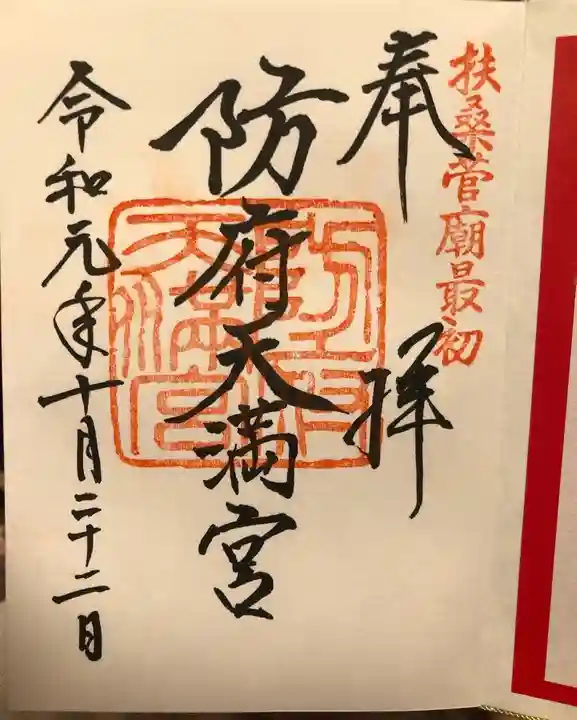 扶桑菅廟最初
奉拝
防府天満宮
防府天満宮
令和元年十月二十二日